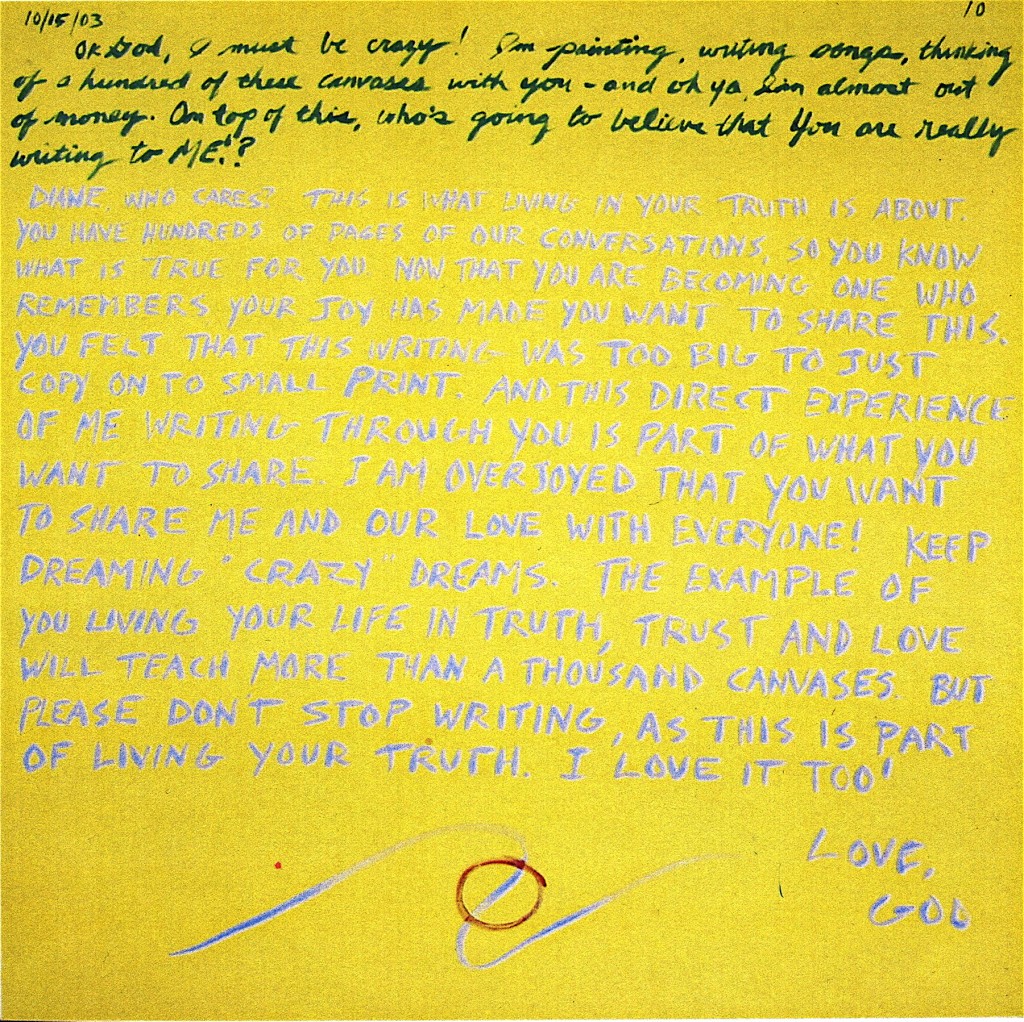 10/15/03
10
OK God, I must be crazy! I'm painting, writing songs, thinking
of a hundred of these canvases with you - and oh ya, I'm almost out
of money. On top of this, who's going to believe that You are really
writing to ME!?
DIANE, WHO CARES? THIS IS WHAT LIVING IN YOUR TRUTH IS ABOUT.
YOU HAVE HUNDREDS OF PAGES OF OUR CONVERSATIONS, SO YOU KNOW
WHAT IS TRUE FOR YOU. NOW THAT YOU ARE BECOMING ONE WHO
REMEMBERS YOUR JOY HAS MADE YOU WANT TO SHARE THIS.
YOU FELT THAT THIS WRITING WAS TOO BIG TO JUST
COPY ON TO SMALL PRINT. AND THIS DIRECT EXPERIENCE
OF ME WRITING THROUGH YOU IS PART OF WHAT YOU
WANT TO SHARE. I AM OVERJOYED THAT YOU WANT
TO SHARE ME AND OUR LOVE WITH EVERYONE! KEEP
DREAMING "CRAZY" DREAMS. THE EXAMPLE OF
YOU LIVING YOUR LIFE IN TRUTH, TRUST AND LOVE
WILL TEACH MORE THAN A THOUSAND CANVASES. BUT
PLEASE DON'T STOP WRITING, AS THIS IS PART
OF LIVING YOUR TRUTH. I LOVE IT TOO!
LOVE,
GOD